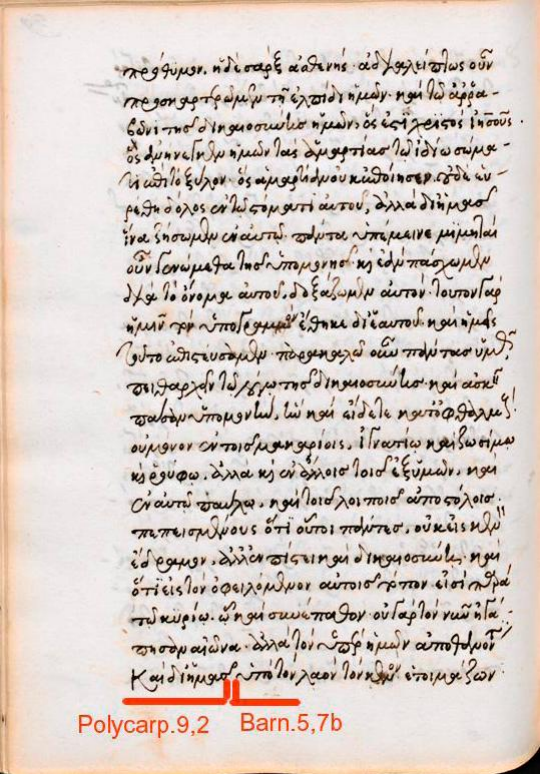 πρόθυμον, ἡ δὲ σὰρξ ἀσθενής· ἀδιαλείπτως οὖν
προσκαρτερῶμεν τῇ ἐλπίδι ἡμῶν· καὶ τῷ ἀρρα-
βῶνι τῆς δικαιοσύνης ἡμῶν, ὅς ἐστι χριστὸς ἰησοῦς.
ὃς ἀνήνεγκεν ἡμῶν τὰς ἁμαρτίας τῷ ἰδίῳ σώμα-
τι ἐπὶ τὸ ξύλον· ὃς ἁμαρτίαν οὐκ ἐποίησεν, οὐδὲ εὑ-
ρέθη δόλος ἐν τῷ στόματι αὐτοῦ, ἀλλὰ δι' ἡμᾶς
ἵνα ζήσωμεν ἐν αὐτῷ· πάντα ὑπέμεινε μιμηταὶ
οὖν γενώμεθα τῆς ὑπομονῆς· καὶ ἐὰν πάσχωμεν
διὰ τὸ ὄνομα αὐτοῦ, δοξάζωμεν αὐτόν· τοῦτον γὰρ
ἡμῖν τὸν ὑπογραμμὸν ἔθηκε δι' ἑαυτοῦ· καὶ ἡμεῖς
τοῦτο ἐπιστεύσαμεν· παρακαλῶ οὖν πάντας ὑμᾶς,
πειθαρχεῖν τῷ λόγῳ τῆς δικαιοσύνης· καὶ ἀσκεῖν
πᾶσαν ὑπομονὴν, ἣν καὶ εἴδετε κατ' ὀφθαλμοὺς
οὐ μόνον ἐν τοῖς μακαρίοις, ἰγνατίῳ καὶ ζωσίμῳ
καὶ ῥούφῳ, ἀλλὰ καὶ ἐν ἄλλοις τοῖς ἐξ ὑμῶν, καὶ
ἐν αὐτῷ παύλῳ, καὶ τοῖς λοιποῖς ἀποστόλοις.
πεπεισμένους ὅτι οὗτοι πάντες, οὐκ εἰς κενὸν
ἔδραμον, ἀλλ' ἐν πίστει καὶ δικαιοσύνῃ, καὶ
ὅτι εἰς τὸν ὀφειλόμενον αὐτοῖς τόπον εἰσὶ παρὰ
τῷ κυρίῳ, ᾧ καὶ συνέπαθον· οὐ γὰρ τὸν νῦν ἠγά-
πησαν αἰῶνα· ἀλλὰ τὸν ὑπὲρ ἡμῶν ἀποθανόντα
Καὶ δι' ἡμᾶς ὑπὸ τὸν λαὸν τὸν καινὸν ἑτοιμάζων
Polycarp.9,2 Barn.5,7b